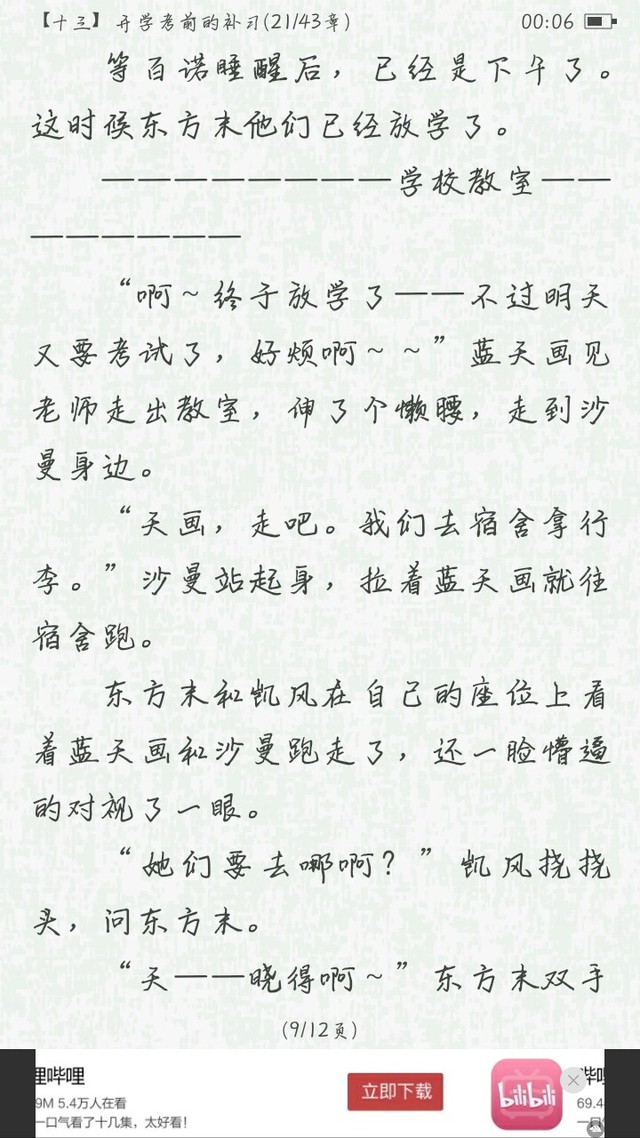 【十三】 开学考前的补习(21/43章)
00:06
等百诺睡醒后，已经是下午了。
这时候东方末他们已经放学了。
————————学校教室——
——————
“啊～终于放学了——不过明天
又要考试了，好烦啊～～”蓝天画见
老师走出教室，伸了个懒腰，走到沙
曼身边。
“天画，走吧。我们去宿舍拿行
李。”沙曼站起身，拉着蓝天画就往
宿舍跑。
东方末和凯风在自己的座位上看
着蓝天画和沙曼跑走了，还一脸懵逼
的对视了一眼。
“她们要去哪啊？”凯风挠挠
头，问东方末。
“天——晓得啊～”东方末双手
(9/12页)
哩哔哩
9M 5.4万人在看
一口气看了十几集，太好看！
立即下载
bilibili
69.4